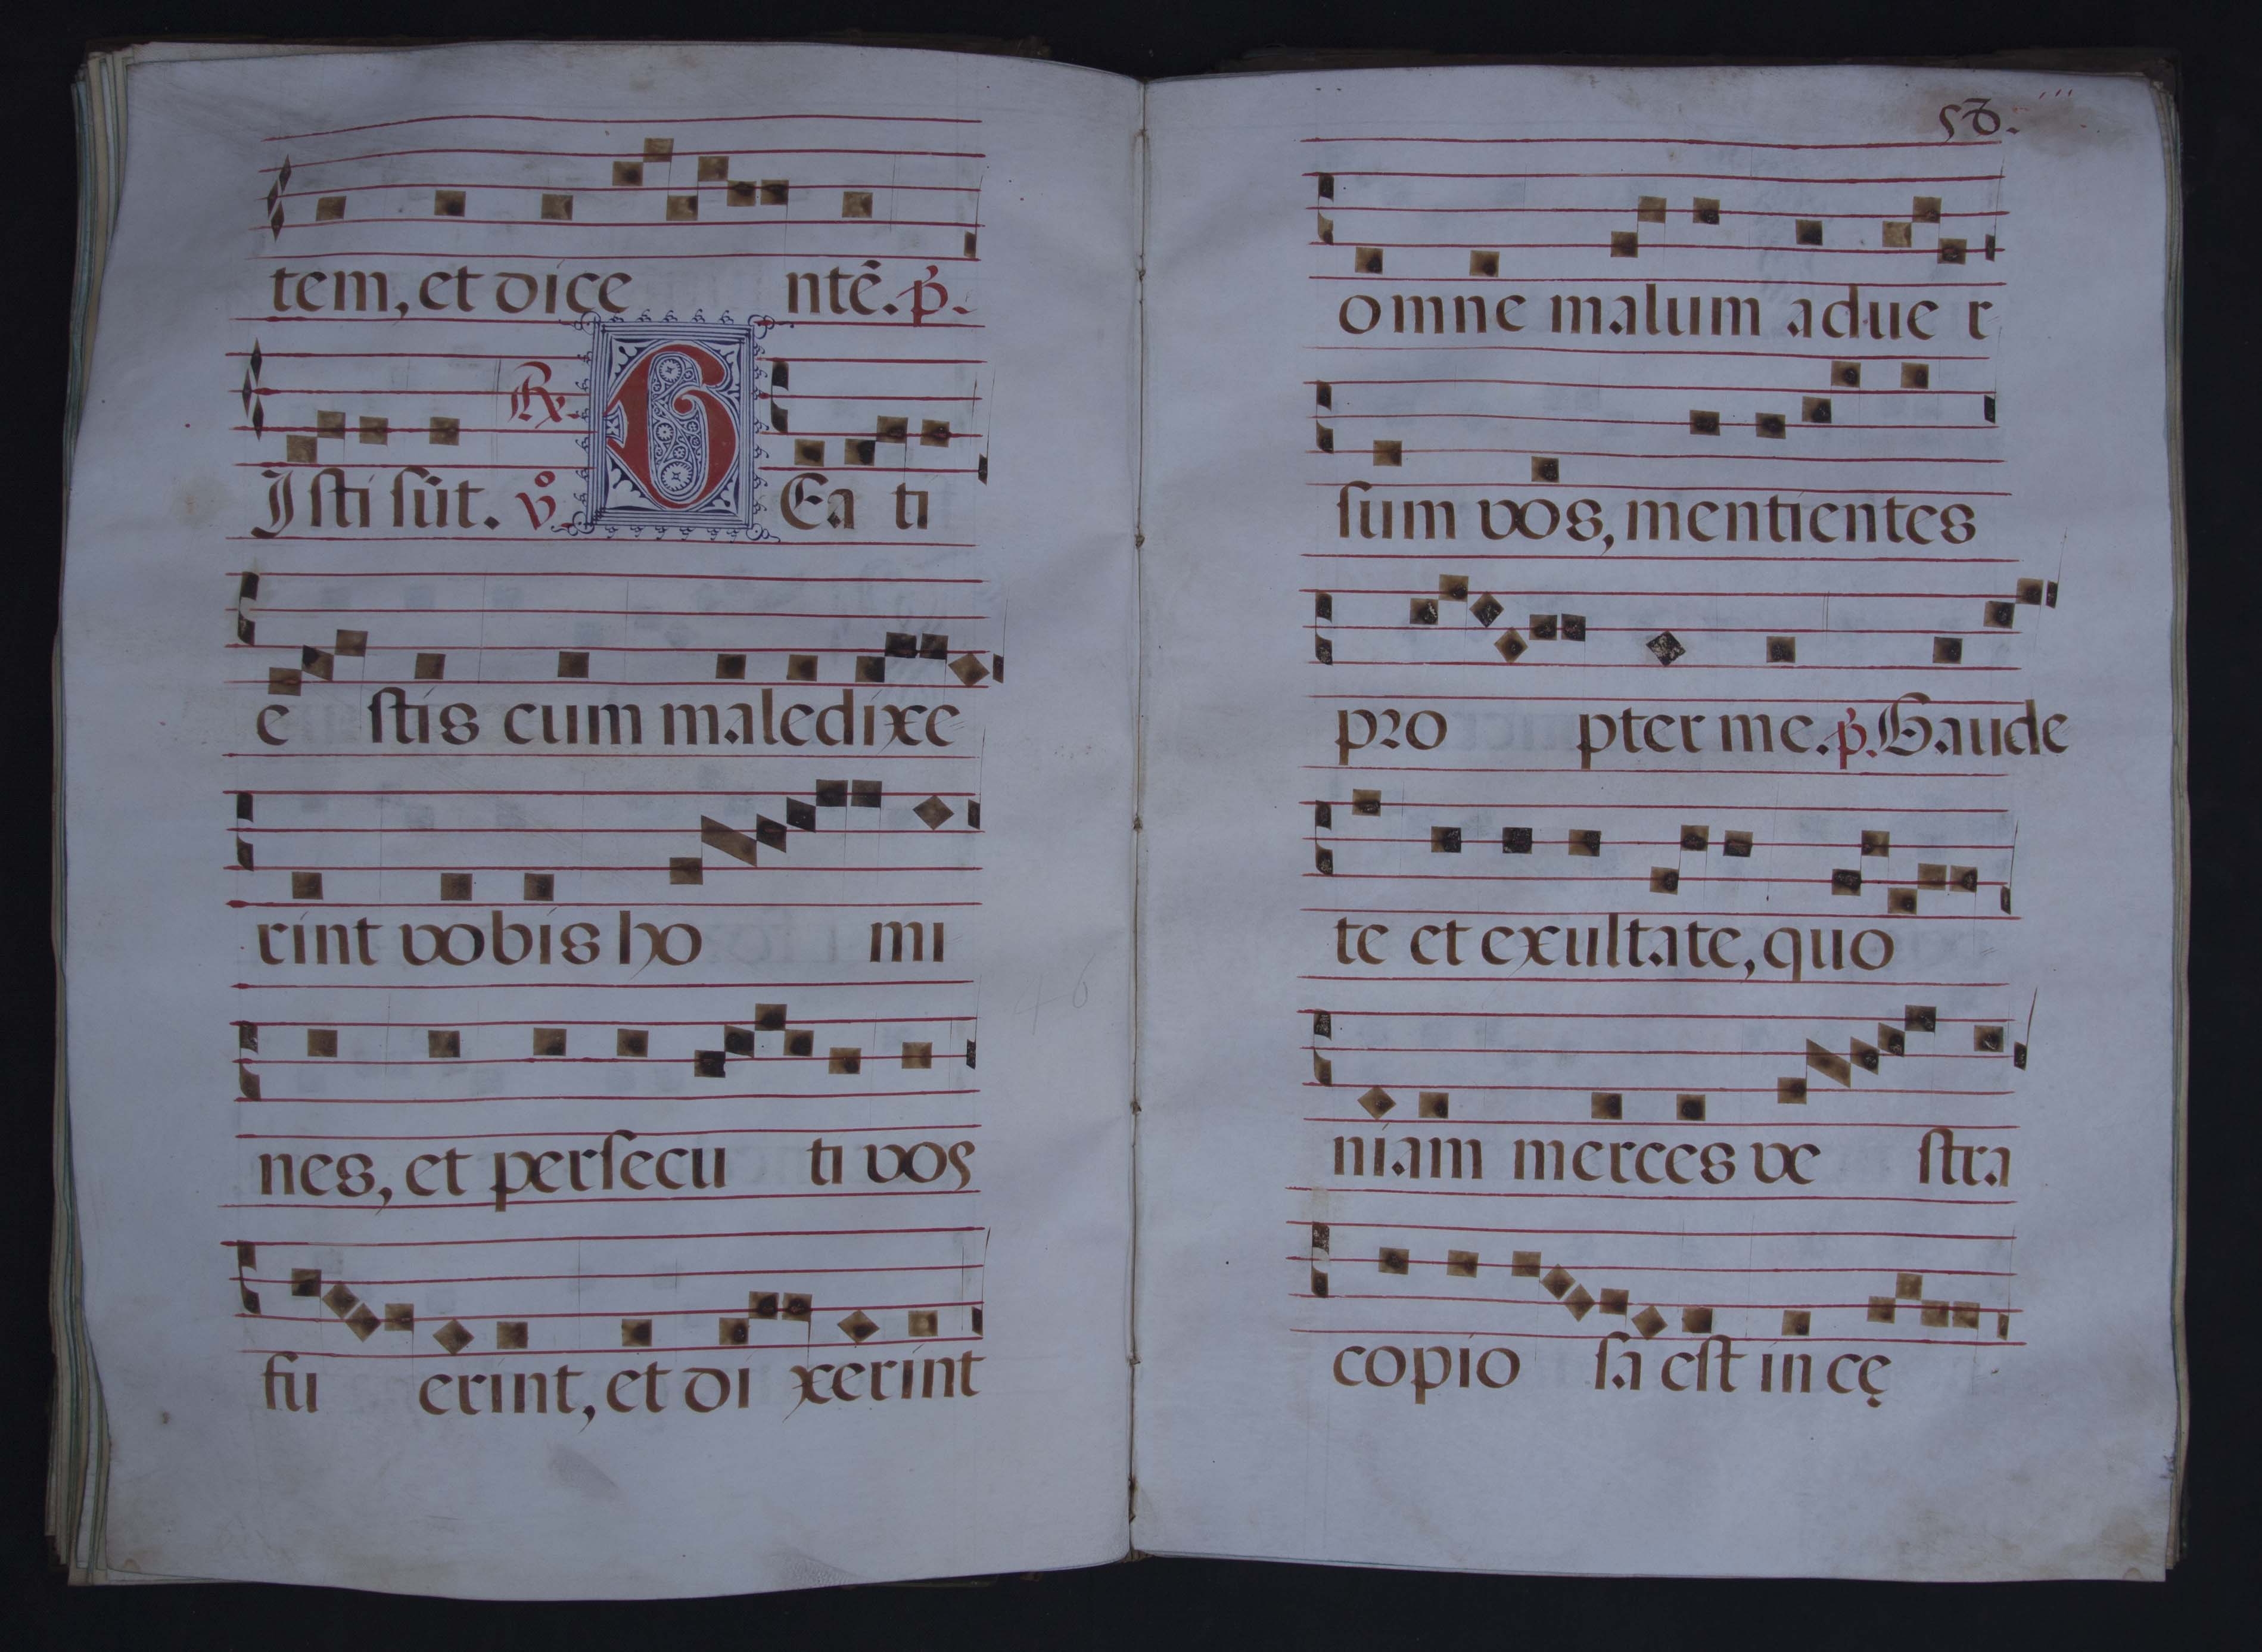 tem, et dice ntē. p̄.
Isti sūt. v̊. R℣. BEa ti
e stis cum maledixe
rint vobis ho mi
nes, et persecu ti vos
fu erint, et di xerint
46
58.
omne malum adue r
sum vos, mentientes
pro pter me. p̄. Gaude
te et exultate, quo
niam merces ve stra
copio sa est in cę